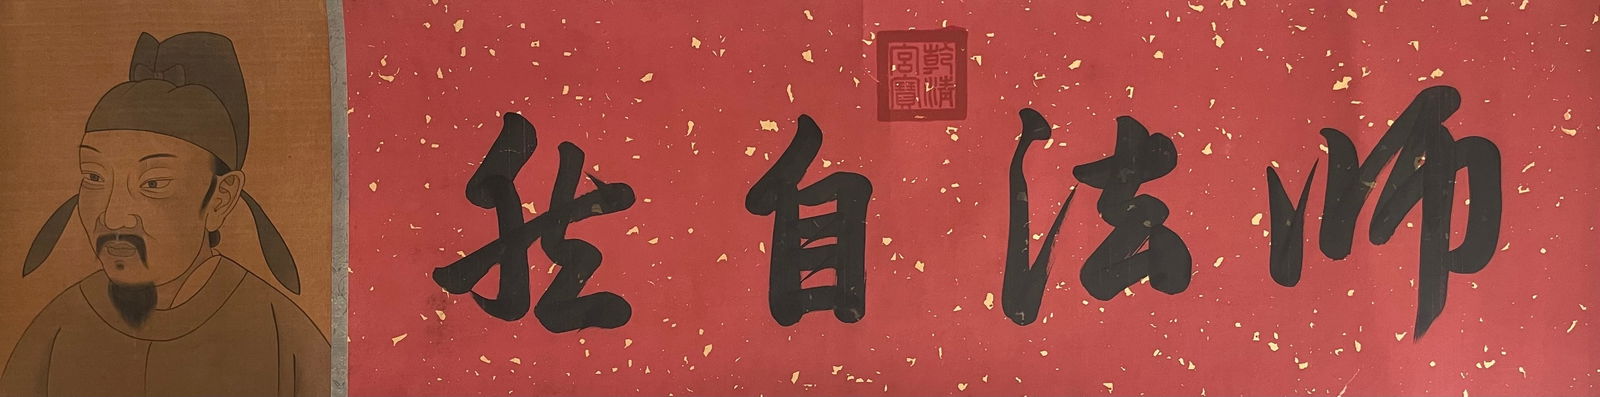 师法自然
乾清
宮寶